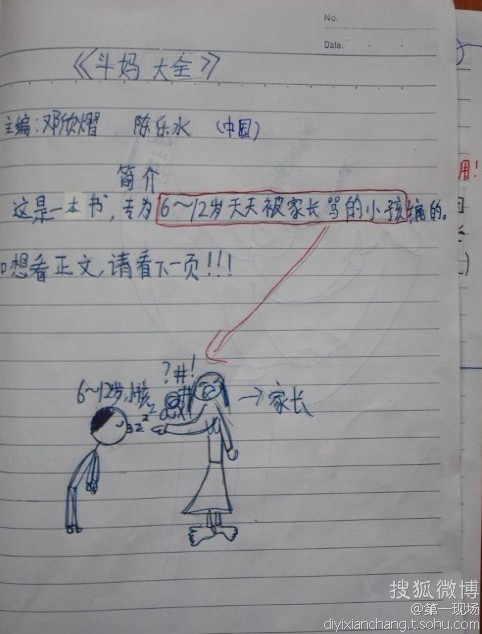 No.
Date.
《斗妈大全》
主编:邓欣熠 陈乐水 (中国)
简介
这是一本书,专为6～12岁天天被家长骂的小孩编的。
想看正文,请看下一页!!!
?#!
6～12岁小孩
zzz
→家长
用!
搜狐微博
@第一现场
diyixianchang.t.sohu.com